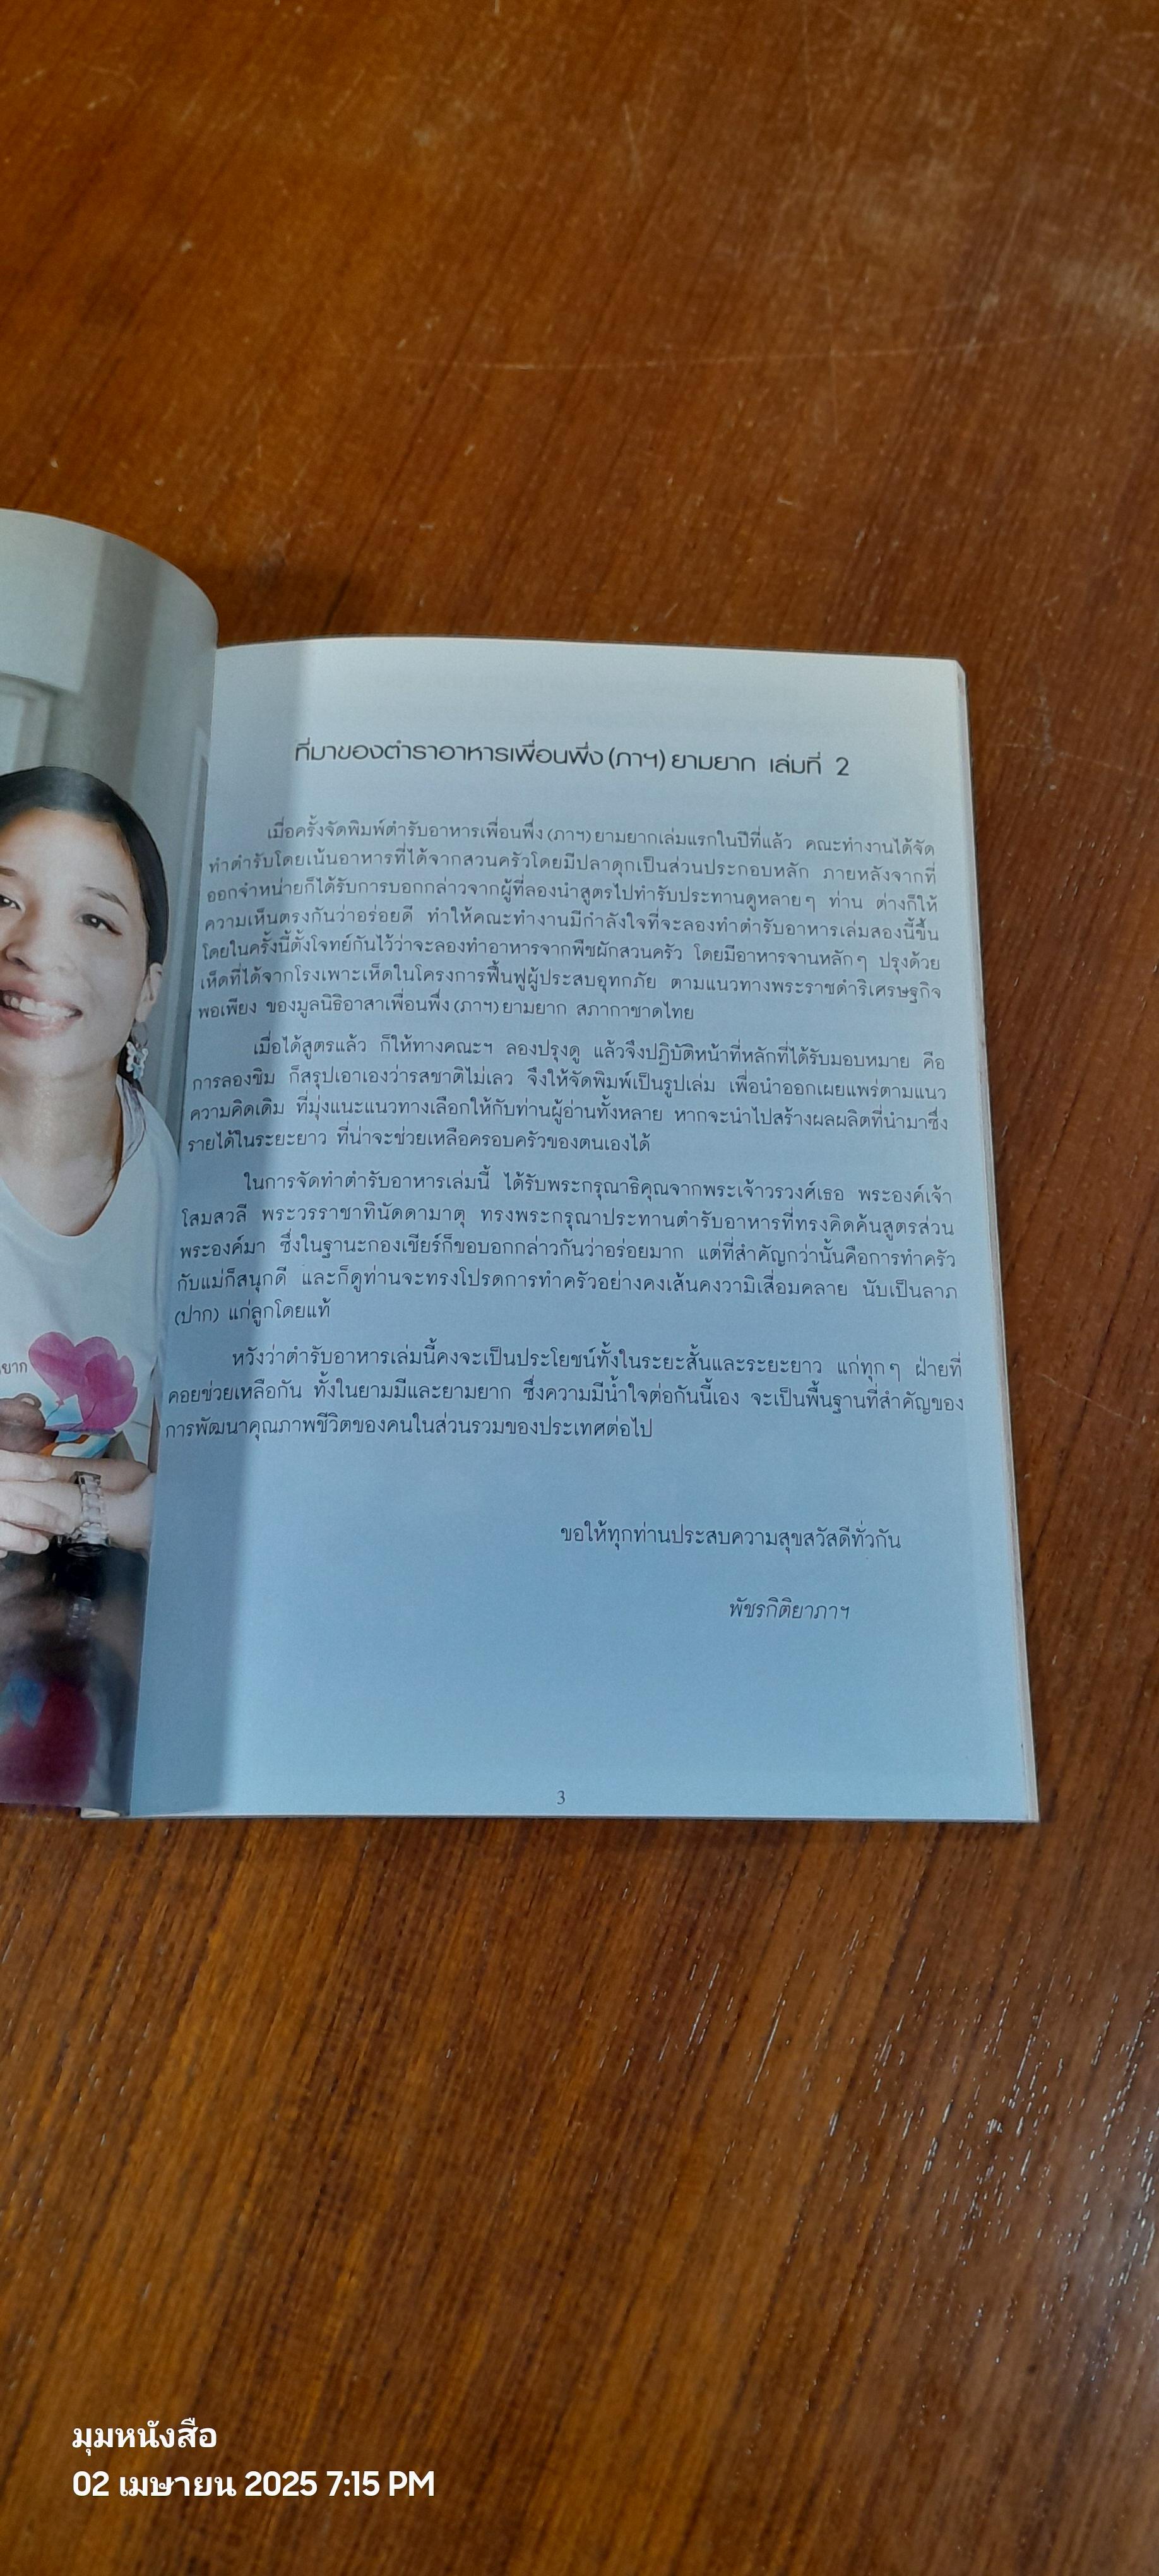 ที่มาของตำราอาหารเพื่อนพึ่ง (ภาฯ) ยามยาก เล่มที่ 2
เมื่อครั้งจัดพิมพ์ตำรับอาหารเพื่อนพึ่ง (ภาฯ) ยามยากเล่มแรกในปีที่แล้ว คณะทำงานได้จัด
ทำตำรับโดยเน้นอาหารที่ได้จากสวนครัวโดยมีปลาดุกเป็นส่วนประกอบหลัก ภายหลังจากที่
ออกจำหน่ายก็ได้รับการบอกกล่าวจากผู้ที่ลองนำสูตรไปทำรับประทานดูหลายๆ ท่าน ต่างก็ให้
ความเห็นตรงกันว่าอร่อยดี ทำให้คณะทำงานมีกำลังใจที่จะลองทำตำรับอาหารเล่มสองนี้ขึ้น
โดยในครั้งนี้ตั้งโจทย์กันไว้ว่าจะลองทำอาหารจากพืชผักสวนครัว โดยมีอาหารจานหลักๆ ปรุงด้วย
เห็ดที่ได้จากโรงเพาะเห็ดในโครงการฟื้นฟูผู้ประสบอุทกภัย ตามแนวทางพระราชดำริเศรษฐกิจ
พอเพียง ของมูลนิธิอาสาเพื่อนพึ่ง (ภาฯ) ยามยาก สภากาชาดไทย
เมื่อได้สูตรแล้ว ก็ให้ทางคณะฯ ลองปรุงดู แล้วจึงปฏิบัติหน้าที่หลักที่ได้รับมอบหมาย คือ
การลองชิม ก็สรุปเอาเองว่ารสชาติไม่เลว จึงให้จัดพิมพ์เป็นรูปเล่ม เพื่อนำออกเผยแพร่ตามแนว
ความคิดเดิม ที่มุ่งแนะแนวทางเลือกให้กับท่านผู้อ่านทั้งหลาย หากจะนำไปสร้างผลผลิตที่นำมาซึ่ง
รายได้ในระยะยาว ที่น่าจะช่วยเหลือครอบครัวของตนเองได้
ในการจัดทำตำรับอาหารเล่มนี้ ได้รับพระกรุณาธิคุณจากพระเจ้าวรวงศ์เธอ พระองค์เจ้า
โสมสวลี พระวรราชาทินัดดามาตุ ทรงพระกรุณาประทานตำรับอาหารที่ทรงคิดค้นสูตรส่วน
พระองค์มา ซึ่งในฐานะกองเชียร์ก็ขอบอกกล่าวกันว่าอร่อยมาก แต่ที่สำคัญกว่านั้นคือการทำครัว
กับแม่ก็สนุกดี และก็ดูท่านจะทรงโปรดการทำครัวอย่างคงเส้นคงวามิเสื่อมคลาย นับเป็นลาภ
(ปาก) แก่ลูกโดยแท้
หวังว่าตำรับอาหารเล่มนี้คงจะเป็นประโยชน์ทั้งในระยะสั้นและระยะยาว แก่ทุกๆ ฝ่ายที่
คอยช่วยเหลือกัน ทั้งในยามมีและยามยาก ซึ่งความมีน้ำใจต่อกันนี้เอง จะเป็นพื้นฐานที่สำคัญของ
การพัฒนาคุณภาพชีวิตของคนในส่วนรวมของประเทศต่อไป
ขอให้ทุกท่านประสบความสุขสวัสดีทั่วกัน
พัชรกิติยาภาฯ
3
มุมหนังสือ
02 เมษายน 2025 7:15 PM